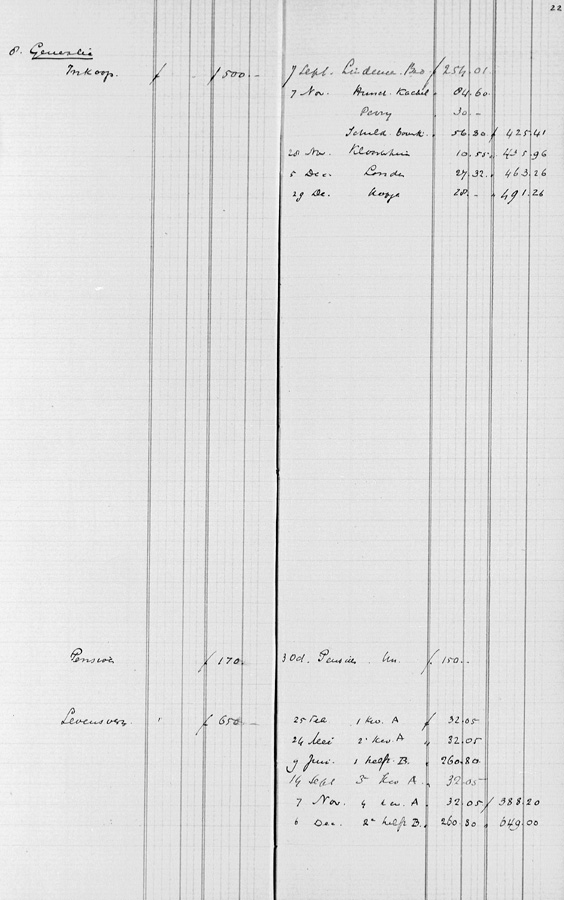 22
8.
Inkoop. f - f 500.- 7 Sept. f 254.01
7 Nov. Hund. Kachel " 84.60
Perry " 30.-
56.30 f 425.41
28 Nov. 10.55 " 435.96
5 Dec. London 27.32 " 463.26
29 De. 28.- " 491.26
f 170.- 3 Od. Pensioen f 150.-
Levensverz. " f 650.- 25 1 kw. A f 32.05
24 Mei 2e kw. A " 32.05
9 Juni. 1 helft B. " 260.80
14 Sept 3e kw A " 32.05
7 Nov. 4 kw. A " 32.05 f 388.20
6 Dec. 2e helft B. " 260.80 " 649.00